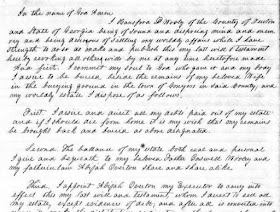 In the name of God Amen
I Bransford D Wooly of the County of Fulton
and State of Georgia being of sound and disposing mind and mem
ory and being desirous of settling my worldly affairs while I have
strength to do so do make and publish this my last will & testament
hereby revoking all other wills by me at any time heretofore made
Item first. I commit my soul to God who gave it and my body
I desire to be buried beside the remains of my beloved Wife
in the burying ground in the town of Conyers in said County, and
my worldly estate I dispose of as follows.
First. I desire and direct all my debts paid out of my estate
and if I should die from home it is my wish that my remains
be brought back and buried as above designated.
Second. the balance of my estate both real and personal
I give and bequeath to my beloved Father Wooly and
my fatherinlaw Overton share and share alike
Third. I appoint Overton my Executor to carry into
effect this my last will and testament, whom I desire to sell all
my estate, except evidences of debt, and after all is converted into